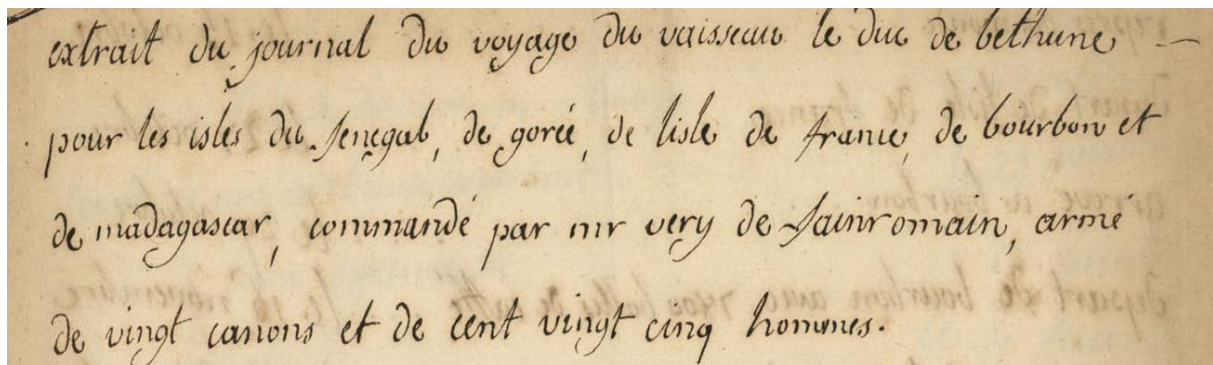 extrait du journal du voyage du vaisseau le duc de bethune —
pour les isles du senegal, de gorée, de lisle de france, de bourbon et
de madagascar, commandé par mr very de sainromain, armé
de vingt canons et de cent vingt cinq hommes.